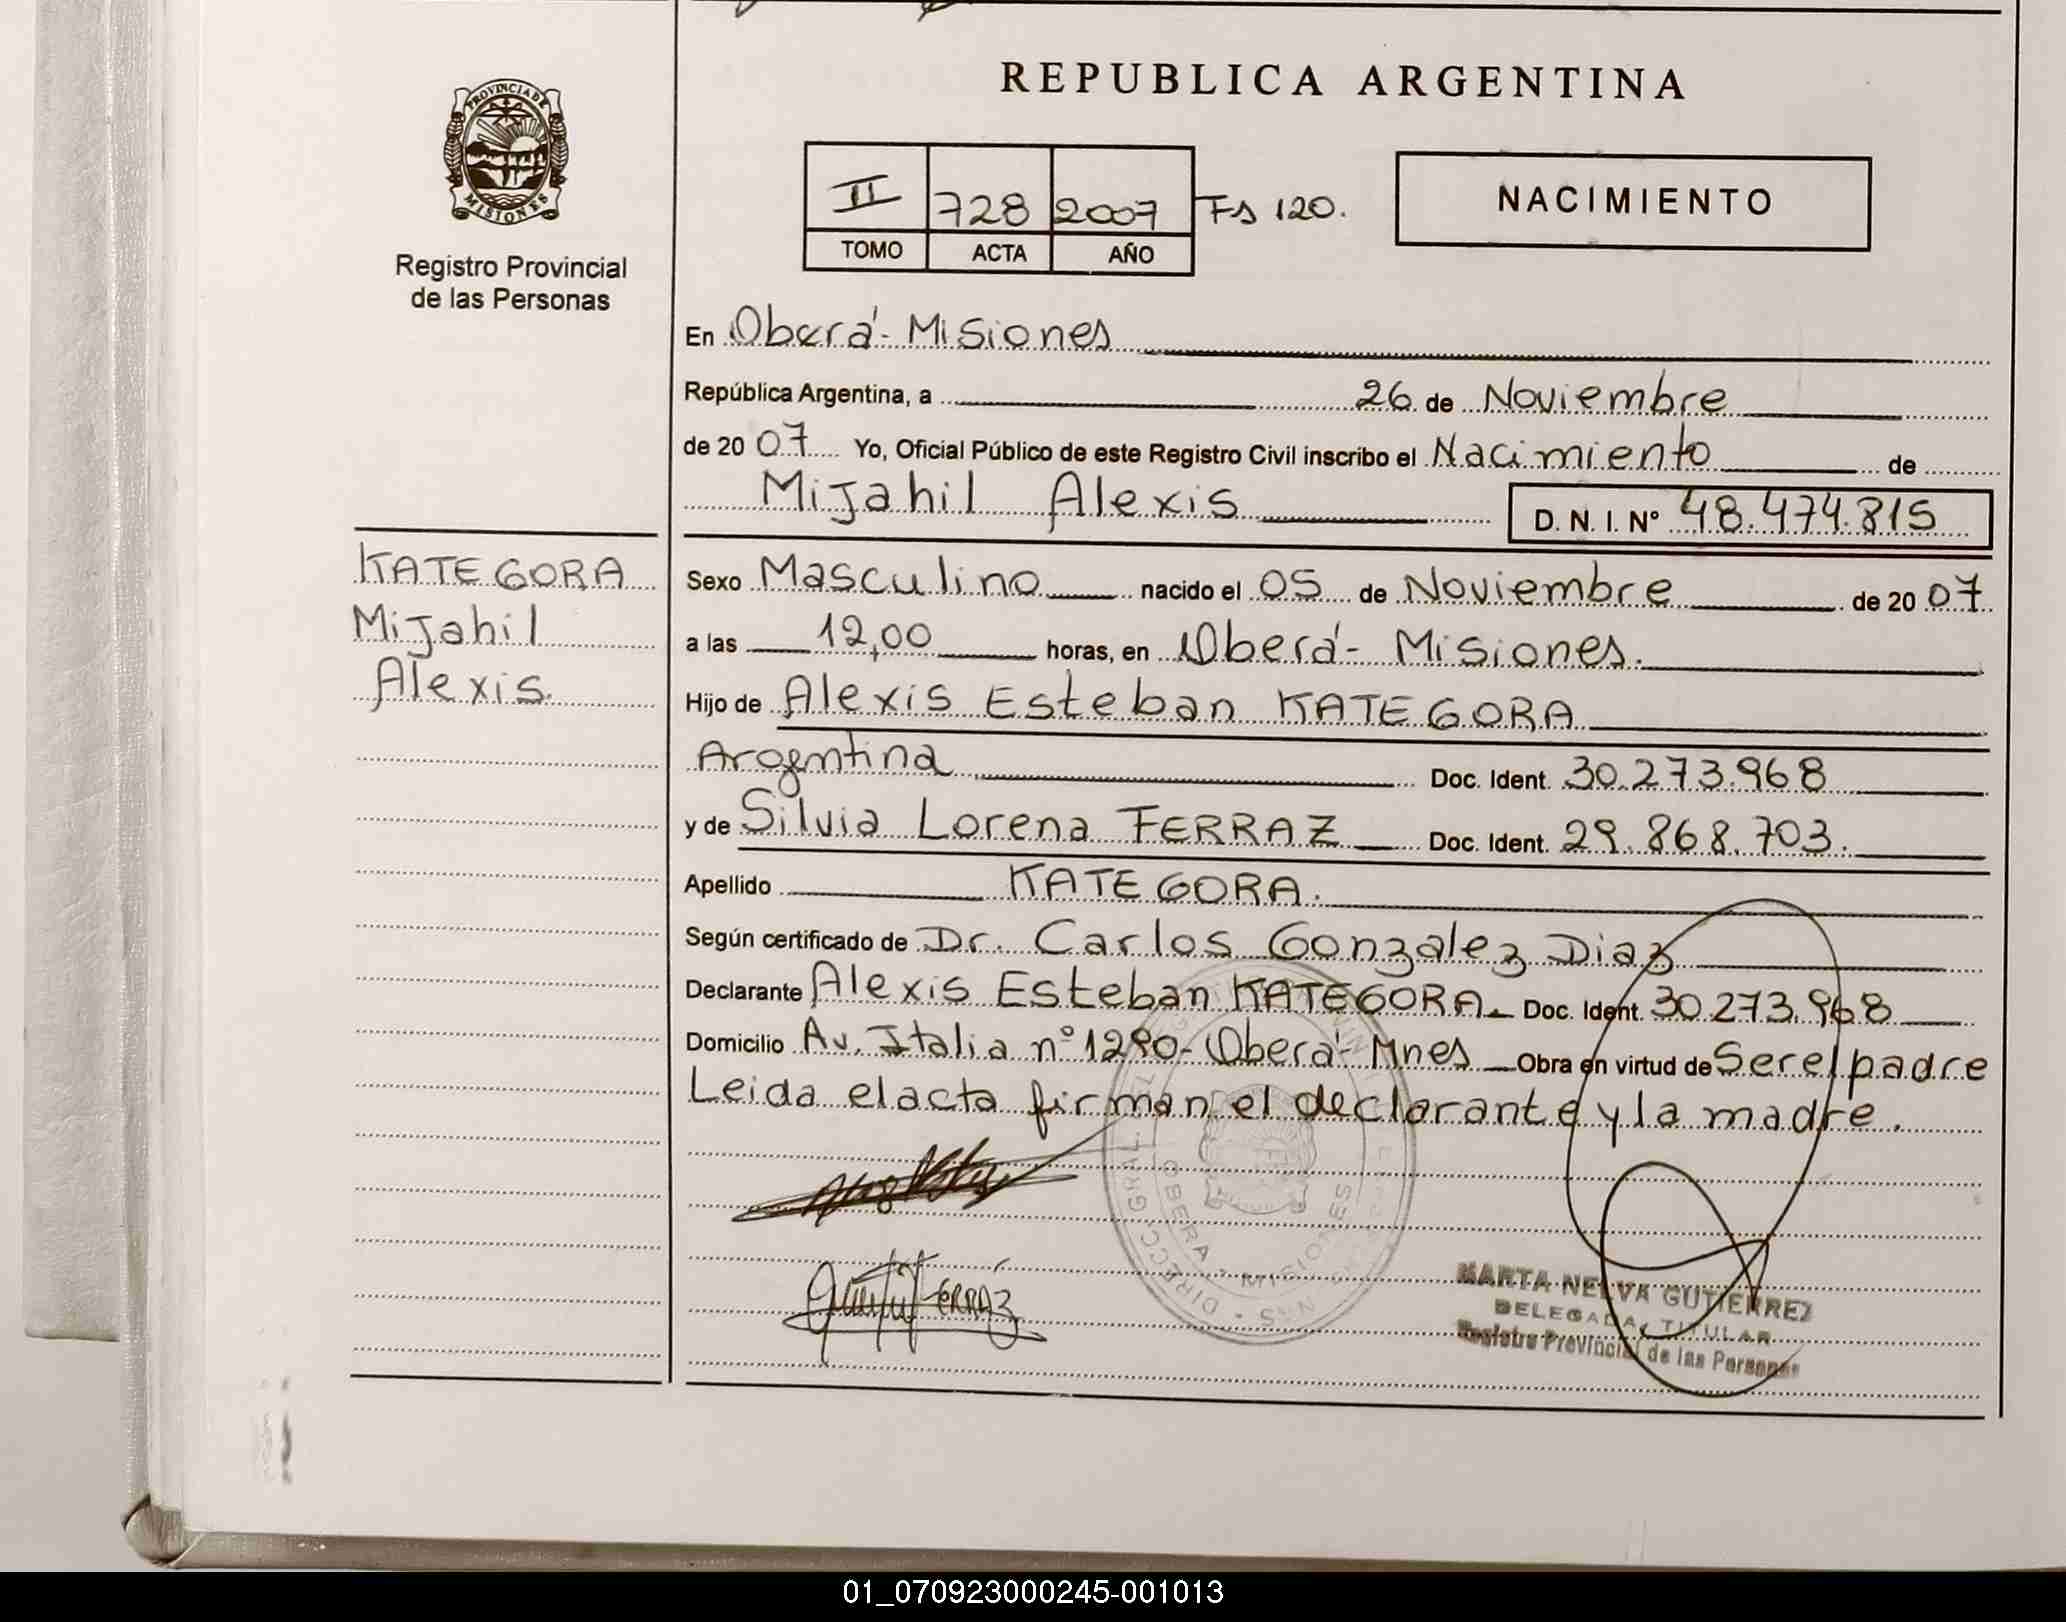 REPUBLICA ARGENTINA
PROVINCIA DE
MISIONES
Registro Provincial
de las Personas
II 728 2007 Fs 120.
TOMO ACTA AÑO
NACIMIENTO
En Oberá - Misiones
República Argentina, a 26 de Noviembre
de 20 07 Yo, Oficial Público de este Registro Civil inscribo el Nacimiento de
Mijahil Alexis D. N. I. Nº 48.474.815
KATEGORA
Mijahil
Alexis.
Sexo Masculino nacido el 05 de Noviembre de 20 07
a las 12,00 horas, en Oberá - Misiones.
Hijo de Alexis Esteban KATEGORA
Argentina Doc. Ident. 30.273.968
y de Silvia Lorena FERRAZ Doc. Ident. 29.868.703.
Apellido KATEGORA.
Según certificado de Dr. Carlos Gonzalez Diaz
Declarante Alexis Esteban KATEGORA Doc. Ident. 30.273.968
Domicilio Av. Italia nº 1290 - Oberá - Mnes Obra en virtud de Ser el padre
Leida el acta firman el declarante y la madre.
OBERA - MISIONES
FERRAZ
MARTA NELVA GUTIERREZ
DELEGADA TITULAR
Registro Provincial de las Personas
01_070923000245-001013